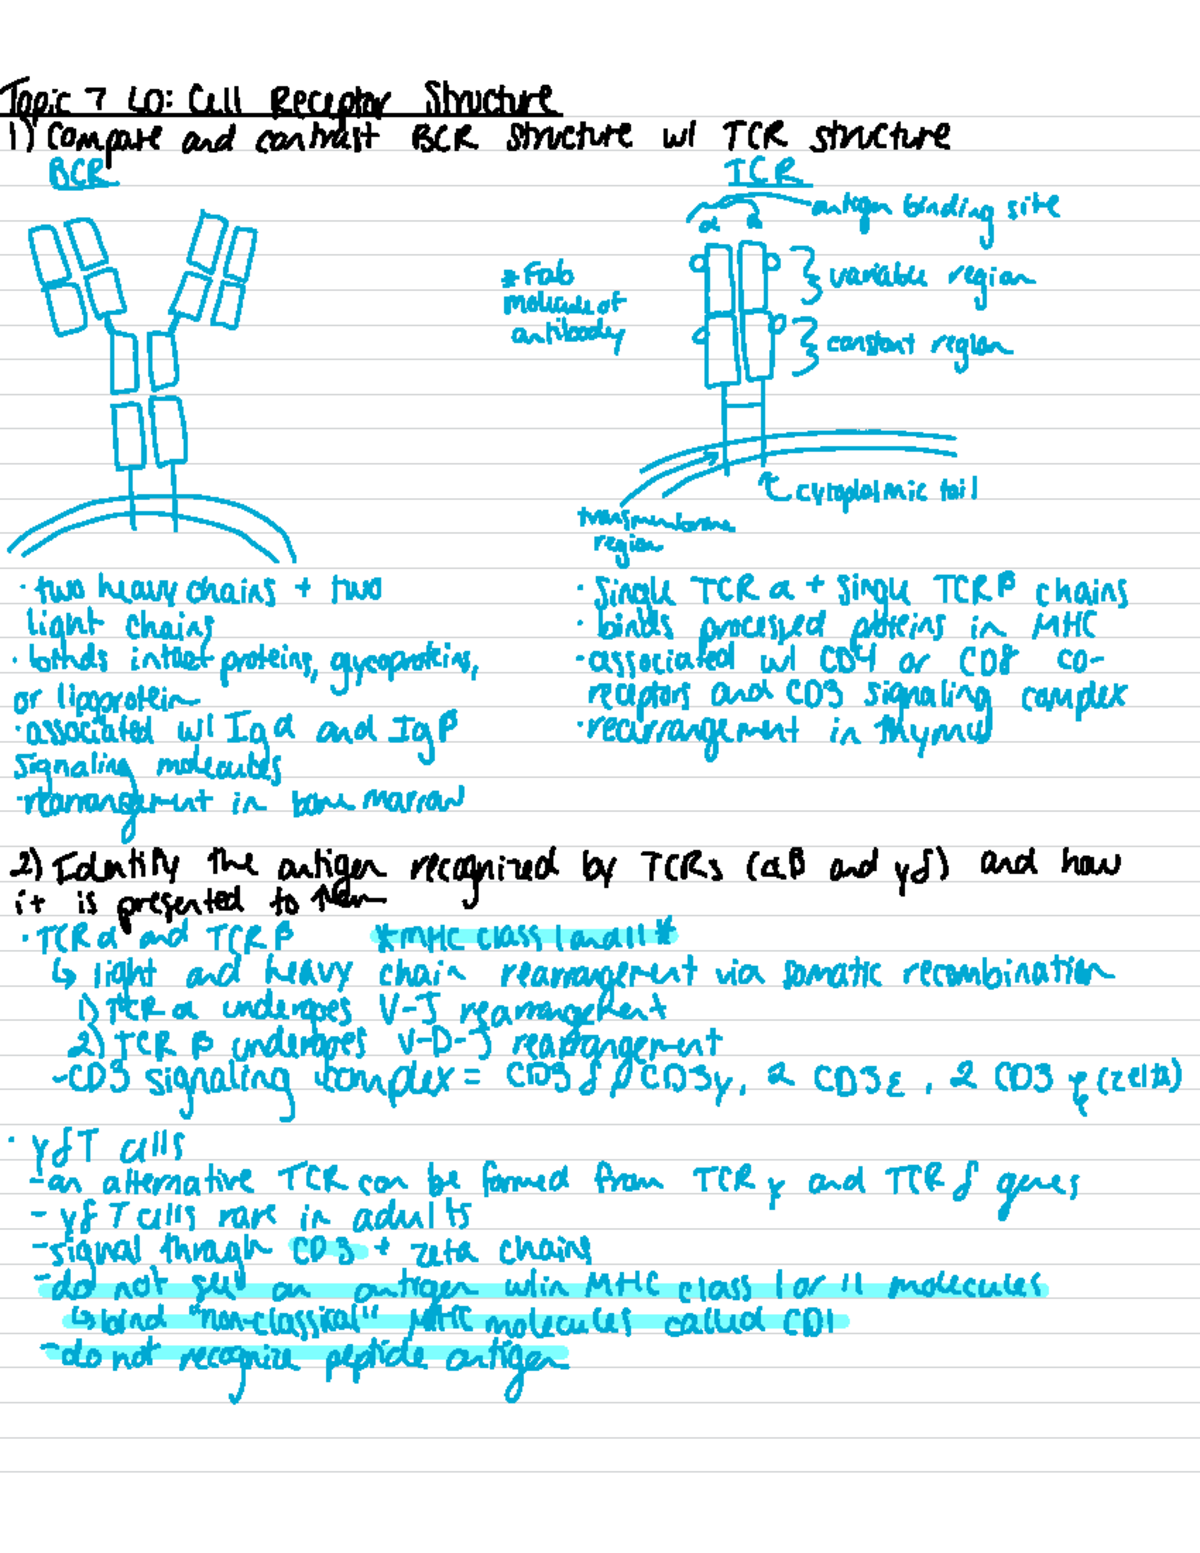 Topic 7 LO: Cell Receptor Structure
1) Compare and contrast BCR structure w/ TCR structure
BCR
TCR
antigen binding site
α
*Fab
molecule of
antibody
variable region
constant region
cytoplasmic tail
transmembrane
region
· two heavy chains + two
light chains
· binds intact proteins, glycoproteins,
or lipoprotein
· associated w/ Igα and Igβ
signaling molecules
· rearrangement in bone marrow
· Single TCR α + single TCR β chains
· binds processed proteins in MHC
- associated w/ CD4 or CD8 co-
receptors and CD3 signaling complex
· rearrangement in thymus
2) Identify the antigen recognized by TCRs (αβ and γδ) and how
it is presented to them
· TCR α and TCR β *MHC class I and II*
↳ light and heavy chain rearrangement via somatic recombination
1) TCR α undergoes V-J rearrangement
2) TCR β undergoes V-D-J rearrangement
- CD3 signaling complex = CD3δ, CD3γ, 2 CD3ε, 2 CD3 ξ (zeta)
· γδT cells
- an alternative TCR can be formed from TCR γ and TCR δ genes
- γδ T cells rare in adults
- signal through CD3 + zeta chains
- do not see an antigen w/in MHC class I or II molecules
↳ bind "non-classical" MHC molecules called CD1
- do not recognize peptide antigen